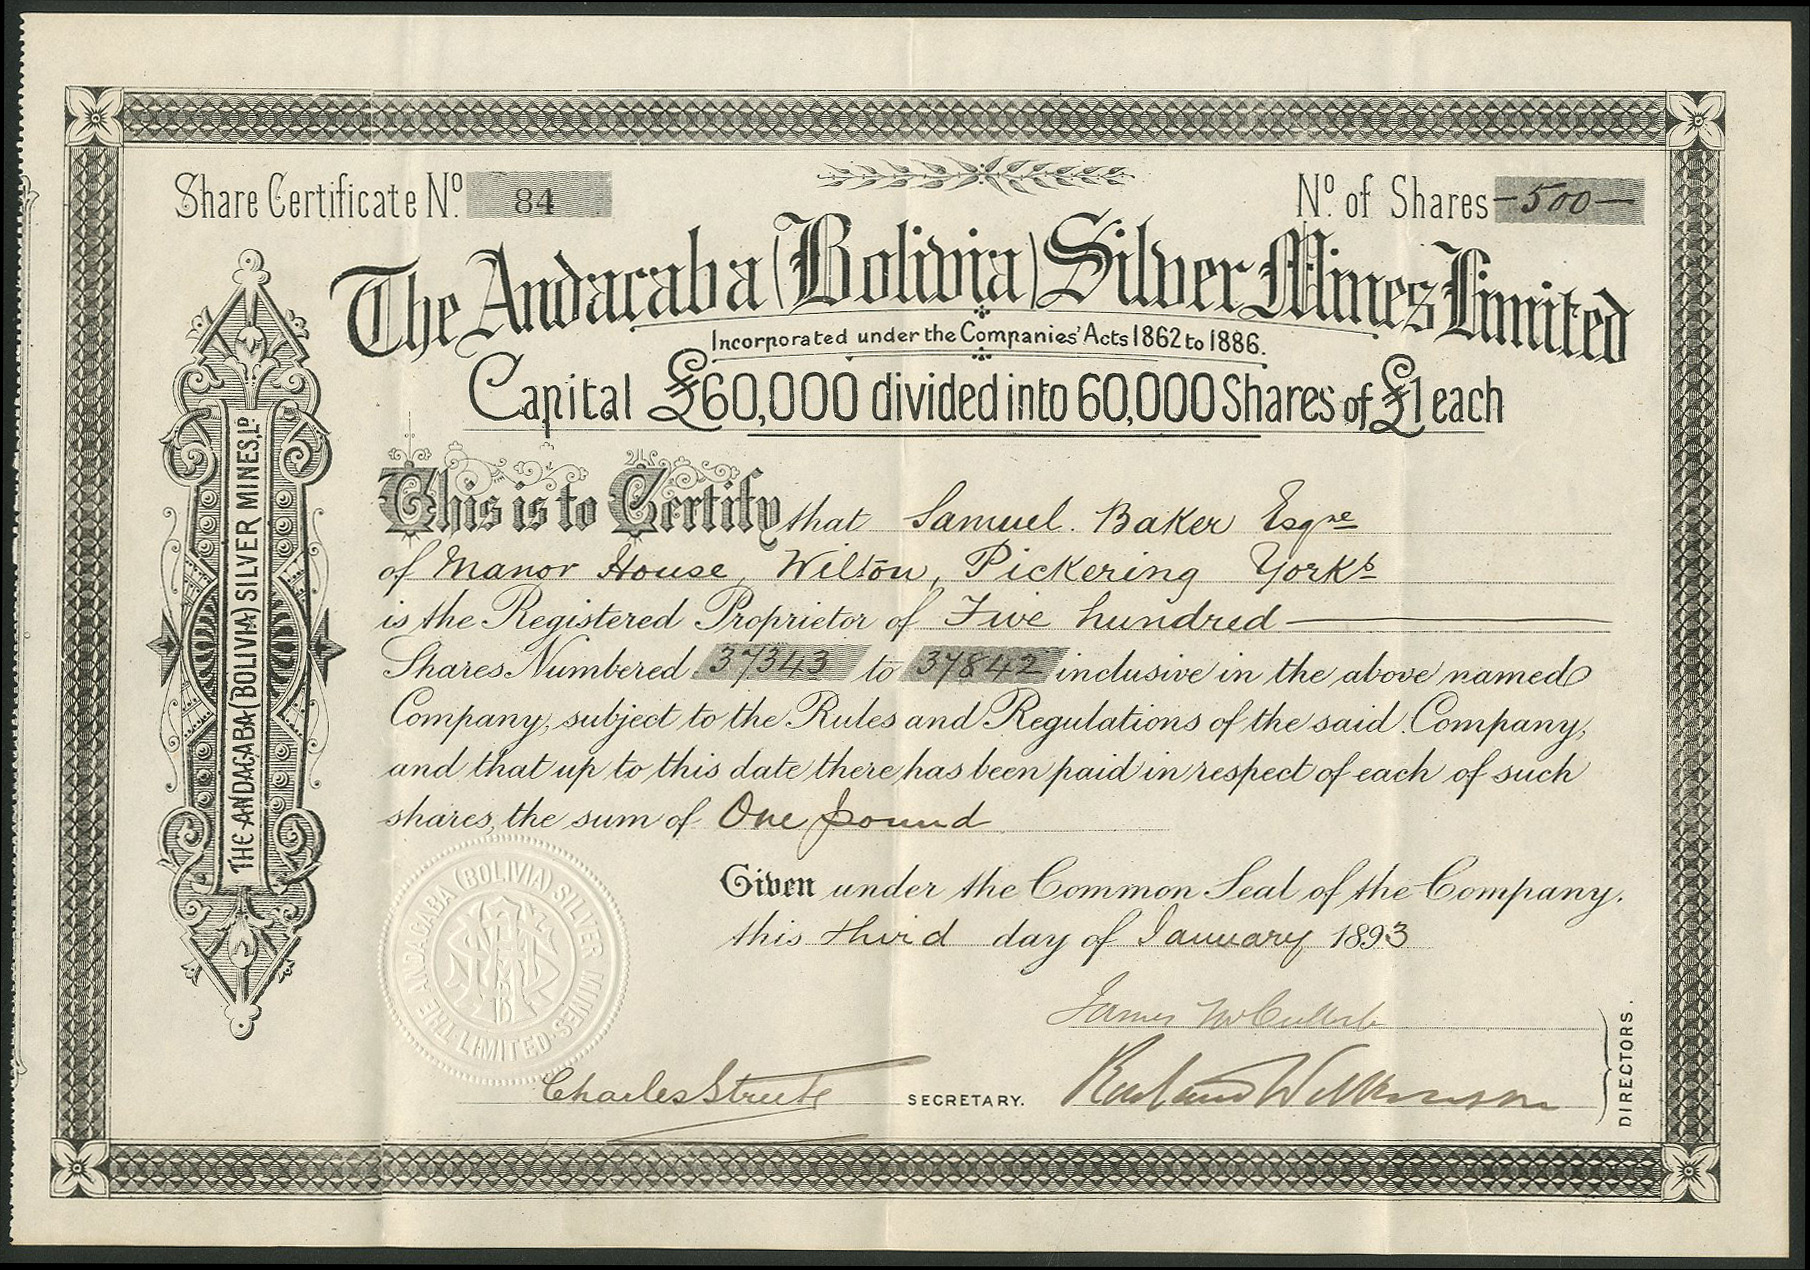 Share Certificate Nº. 84
Nº. of Shares -500-
The Andacaba (Bolivia) Silver Mines Limited
Incorporated under the Companies' Acts 1862 to 1886.
Capital £60,000 divided into 60,000 Shares of £1 each
THE ANDACABA (BOLIVIA) SILVER MINES, Lᴰ.
This is to Certify that Samuel. Baker Esqre
of Manor House, Wilton, Pickering Yorks
is the Registered Proprietor of Five hundred
Shares Numbered 37343 to 37842 inclusive in the above named
Company, subject to the Rules and Regulations of the said Company,
and that up to this date there has been paid in respect of each of such
shares, the sum of One pound
Given under the Common Seal of the Company.
this third day of January 1893
THE ANDACABA (BOLIVIA) SILVER MINES LIMITED
James
Charles SECRETARY. Wilkinson
DIRECTORS.